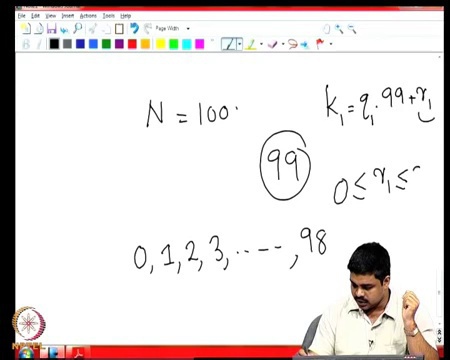 File Edit View Insert Actions Tools Help
Page Width
B
N = 100.
k₁ = q₁.99 + r₁
99
0 ≤ r₁ ≤
0, 1, 2, 3, ....., 98